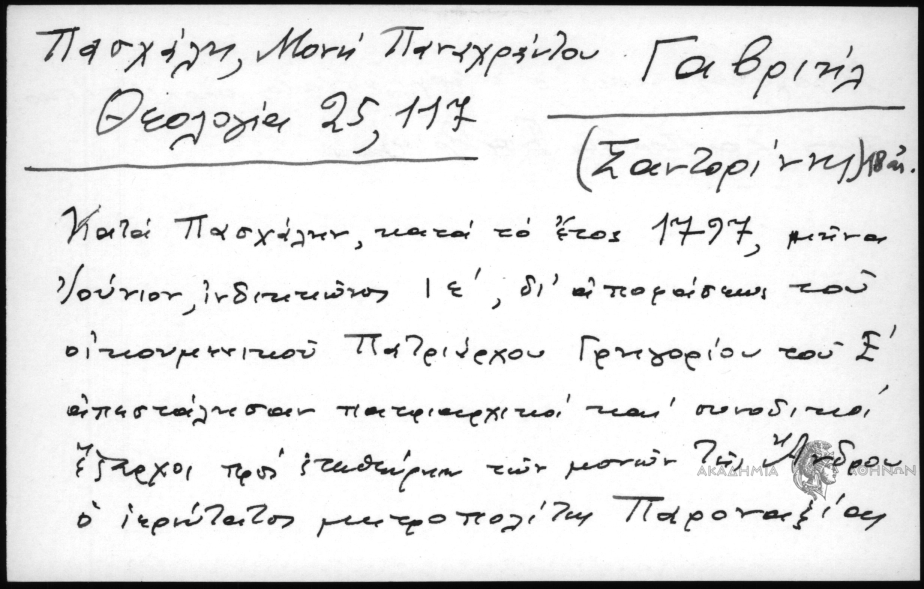 Πασχάλη, Μονή Παναχράντου
Θεολογία 25, 117
Γαβριήλ
(Σαντορίνης) 18 αἰ.
Κατά Πασχάλην, κατά τό ἔτος 1797, μῆνα
Ἰούνιον, ἰνδικτιῶνος ιε', δι' ἀποφάσεως τοῦ
οἰκουμενικοῦ Πατριάρχου Γρηγορίου τοῦ Ε'
ἀπεστάλησαν πατριαρχικοί καί συνοδικοί
ἔξαρχοι πρός ἐπιθεώρησιν τῶν μονῶν τῆς Ἄνδρου
ὁ ἱερώτατος μητροπολίτης Παροναξίας
ΑΚΑΔΗΜΙΑ ΑΘΗΝΩΝ